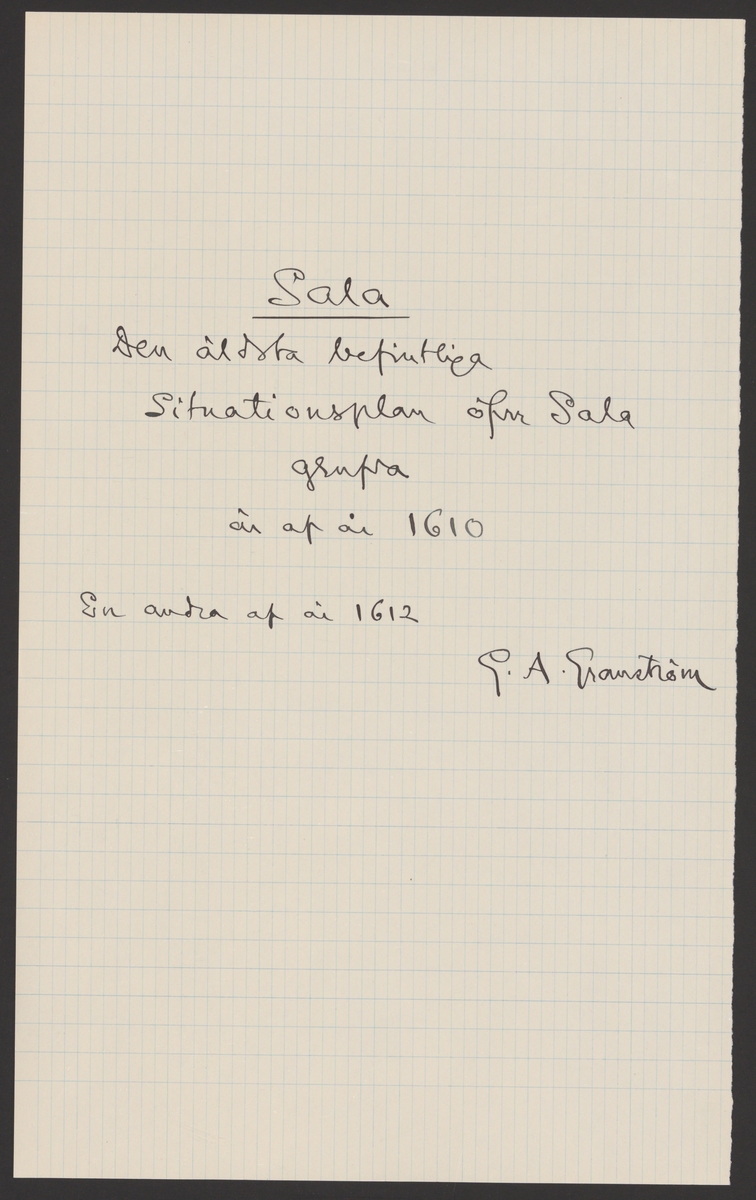 Sala
Den äldsta befintliga
Situationsplan öfver Sala
grufva
är af år 1610
En andra af år 1612
G. A. Granström